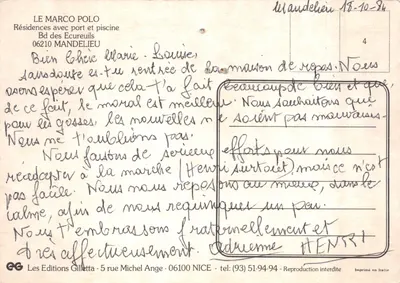 LE MARCO POLO
Résidences avec port et piscine
Bd des Ecureuils
06210 MANDELIEU
Mandelieu 18-10-84
4
Bien Chère Marie-Louise,
sans doute es-tu rentrée de la maison de repos. Nous
avons espérer que cela t'a fait beaucoup de bien et que
de ce fait, le moral est meilleur. Nous souhaitons que
pour les gosses, les nouvelles ne soient pas mauvaises.
Nous ne t'oublions pas.
Nous faisons de sérieux efforts pour nous
réadapter à la marche (Henri surtout) mais ce n'est
pas facile. Nous nous reposons au mieux, dans le
calme, afin de nous requinquer un peu.
Nous t'embrassons fraternellement et
très affectueusement. Adrienne HENRI
EG Les Editions Gilletta - 5 rue Michel Ange - 06100 NICE - tel: (93) 51-94-94 - Reproduction interdite